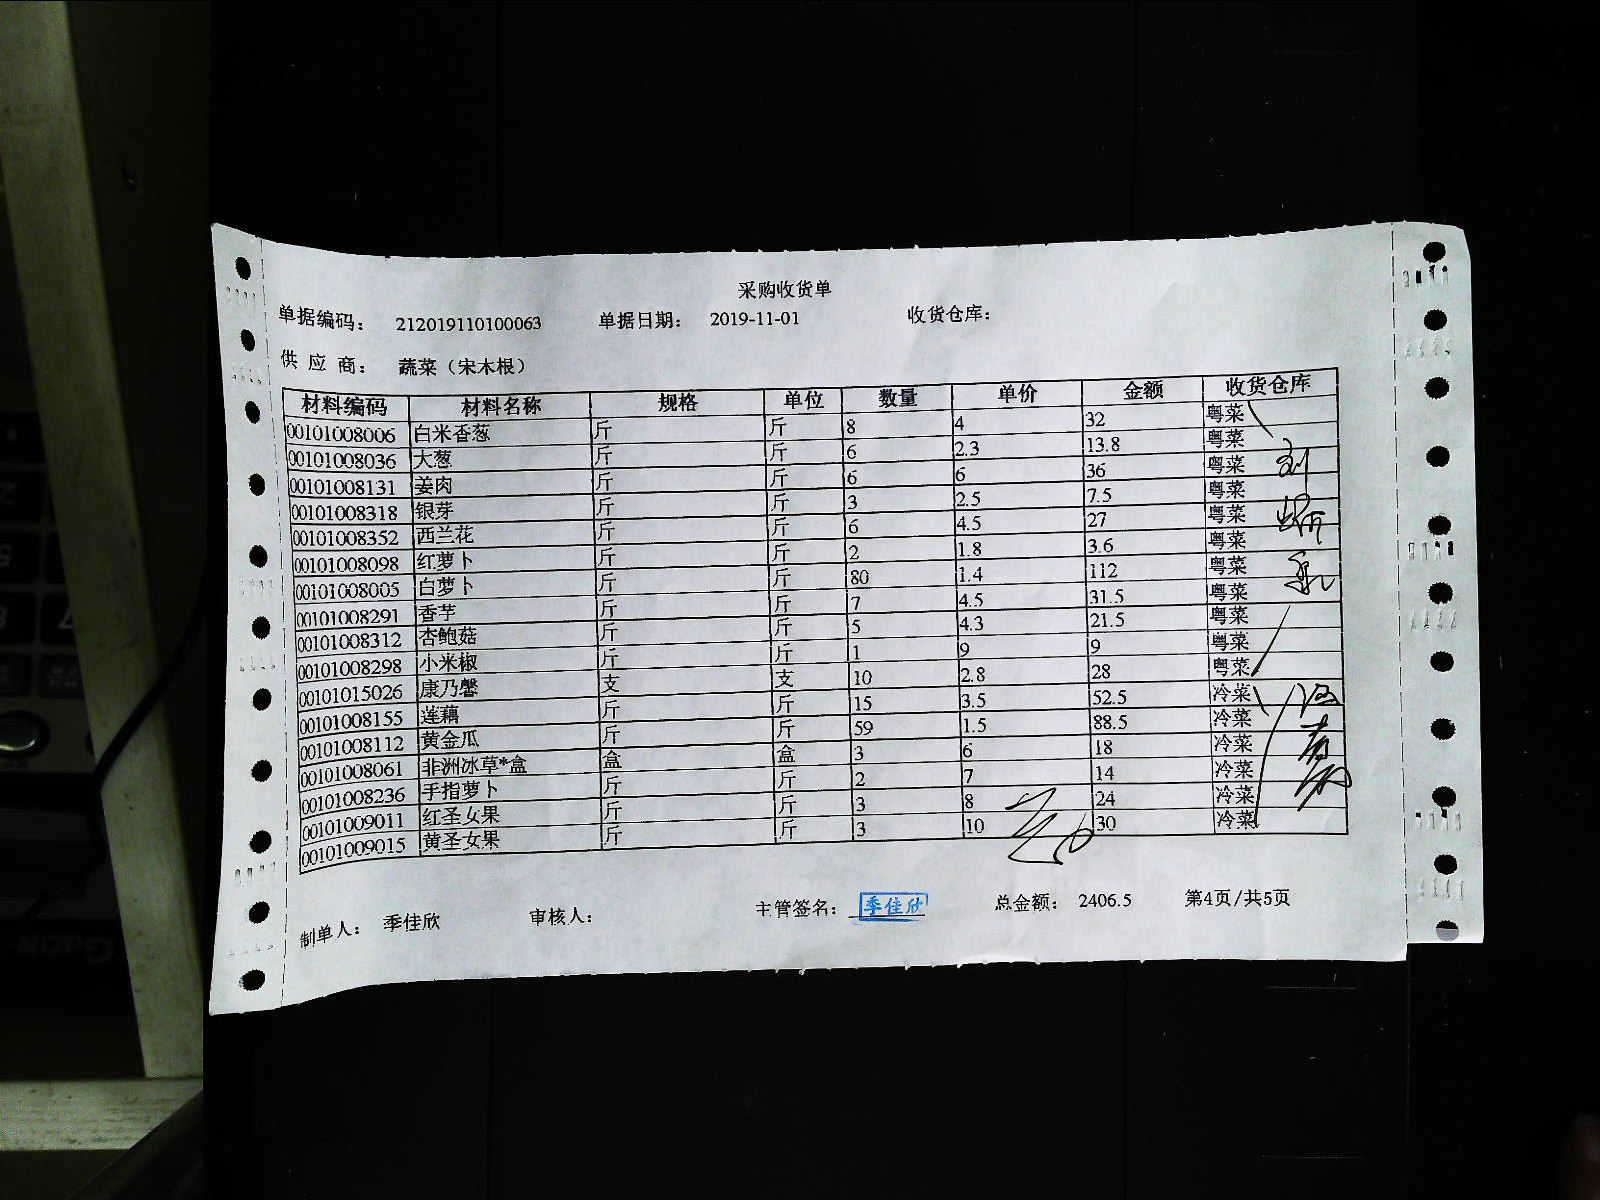 采购收货单
单据编码： 212019110100063 单据日期： 2019-11-01 收货仓库：
供 应 商： 蔬菜（宋木根）
材料编码 材料名称 规格 单位 数量 单价 金额 收货仓库
00101008006 白米香葱 斤 斤 8 4 32 粤菜
00101008036 大葱 斤 斤 6 2.3 13.8 粤菜
00101008131 姜肉 斤 斤 6 6 36 粤菜
00101008318 银芽 斤 斤 3 2.5 7.5 粤菜
00101008352 西兰花 斤 斤 6 4.5 27 粤菜
00101008098 红萝卜 斤 斤 2 1.8 3.6 粤菜
00101008005 白萝卜 斤 斤 80 1.4 112 粤菜
00101008291 香芋 斤 斤 7 4.5 31.5 粤菜
00101008312 杏鲍菇 斤 斤 5 4.3 21.5 粤菜
00101008298 小米椒 斤 斤 1 9 9 粤菜
00101015026 康乃馨 支 支 10 2.8 28 粤菜
00101008155 莲藕 斤 斤 15 3.5 52.5 冷菜
00101008112 黄金瓜 斤 斤 59 1.5 88.5 冷菜
00101008061 非洲冰草*盒 盒 盒 3 6 18 冷菜
00101008236 手指萝卜 斤 斤 2 7 14 冷菜
00101009011 红圣女果 斤 斤 3 8 24 冷菜
00101009015 黄圣女果 斤 斤 3 10 30 冷菜
制单人： 季佳欣 审核人： 主管签名： 季佳欣 总金额： 2406.5 第4页/共5页